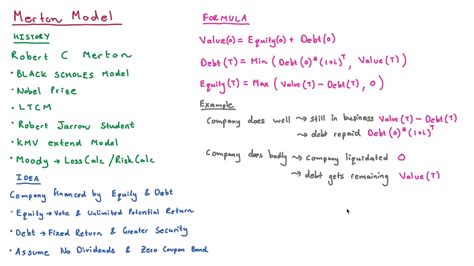 Merton Model
HISTORY
Robert C Merton
• BLACK SCHOLES Model
• Nobel Prize
• LTCM
• Robert Jarrow Student
• KMV extend Model
• Moody → LossCalc / RiskCalc
IDEA
Company financed by Equity & Debt
• Equity → Vote & Unlimited Potential Return
• Debt → Fixed Return & Greater Security
• Assume No Dividends & Zero Coupon Bond
FORMULA
Value(0) = Equity(0) + Debt(0)
Debt(T) = Min ( Debt(0)*(1+i)^T , Value(T) )
Equity(T) = Max ( Value(T) - Debt(T), 0 )
Example
Company does well → still in business Value(T) - Debt(T)
→ debt repaid Debt(0)*(1+i)^T
Company does badly → company liquidated 0
→ debt gets remaining Value(T)